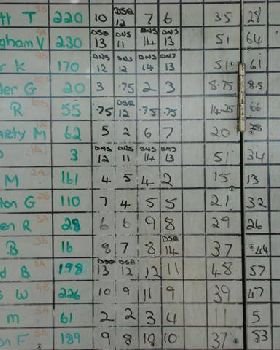 T 220 10 DSQ 12 7 6 35 28
gham V 230 DSQ 13 DNS 11 DNS 14 DNS 13 51 64
K 170 DNS 12 DNS 12 DNS 14 DNS 13 51 61
er G 20 3 .75 2 3 8.75 8.5
R 55 .75 DSQ 12 .75 .75 14.25 66
M 62 5 2 6 7 20
3 DNS 12 DNS 11 DNS 14 DNS 13 51 34
M 161 4 5 4 2 15 13
on G 110 7 4 5 5 21 32
en R 28 6 6 9 8 29 26
B 16 8 7 8 DSQ 14 37 44
d B 198 DSQ 13 DSQ 12 12 11 48 57
s W 226 10 9 11 9 39 47
m 61 2 2 3 4 11 5
on F 189 9 8 10 10 37 33